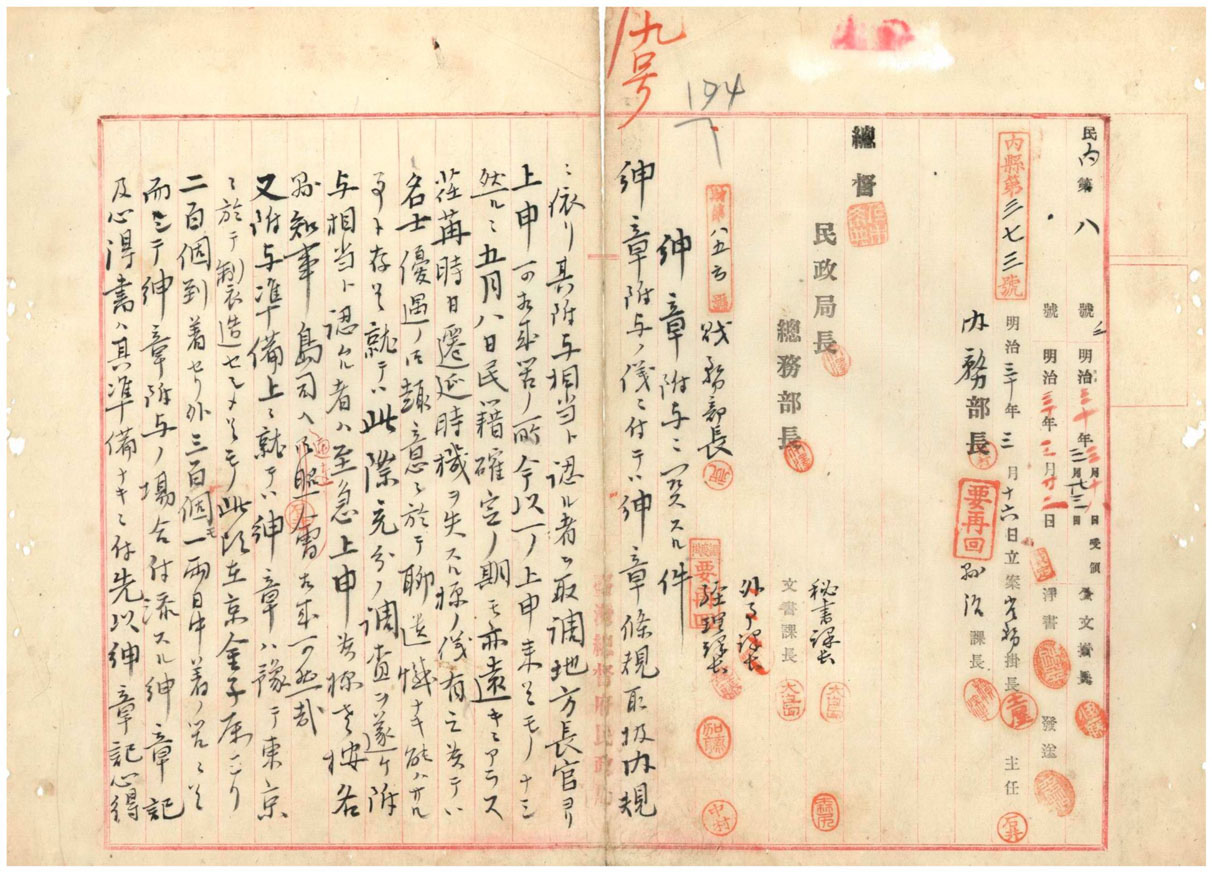 九号
194
民内第八號ノ二 明治三十年三月十八日受領 全文書
内縣第三七三號
號 明治三十年三月廿二日 淨書 發送
明治三十年三月十六日立案 掛長 主任
内務部長
要再回
課長
總督
民政局長
總務部長
秘書課長
文書課長
外事課長
經理課長
要再回
財第八五号
財務部長
紳章附与ニ関スル件
紳章附与ノ儀ニ付テハ紳章條規取扱内規
ニ依リ其附与相当ト認ル者ヲ取調地方長官ヨリ
上申可相成筈ノ所今以一ノ上申来ルモノナシ
然ルニ五月八日民籍確定ノ期モ亦遠キニアラス
荏苒時日遷延時機ヲ失スル様ノ儀有之候テハ
名士優遇ノ御趣意ニ於テ聊遺憾ナキ能ハサル
事ト存候就テハ此際充分ノ調査ヲ遂ケ附
与相当ト認ムル者ハ至急上申候様各
縣知事島司ヘ御照會相成可然哉
又附与準備上ニ就テハ紳章ハ豫テ東京
ニ於テ製造セシメ候モ此頃在京金子属ヨリ
二百個到着セリ外三百個モ一両日中着ノ筈ニ候
而シテ紳章附与ノ場合付添スル紳章記
及心得書ハ其準備ナキニ付先以紳章記心得
臺灣總督府民政局